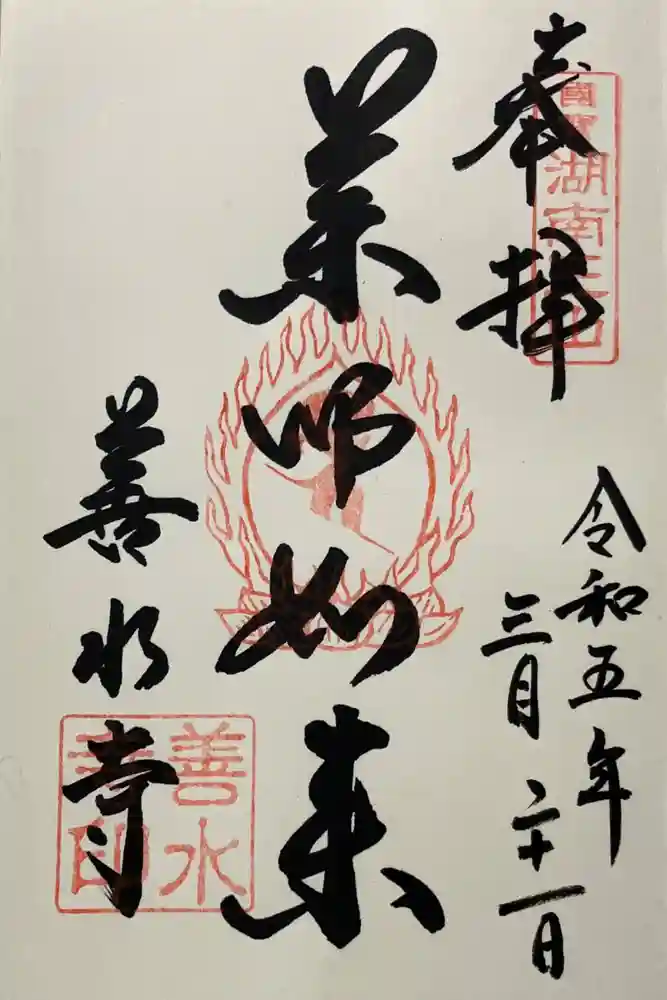 奉拝
國寳湖南三山
令和五年
三月二十一日
薬師如来
善水寺
善水寺印